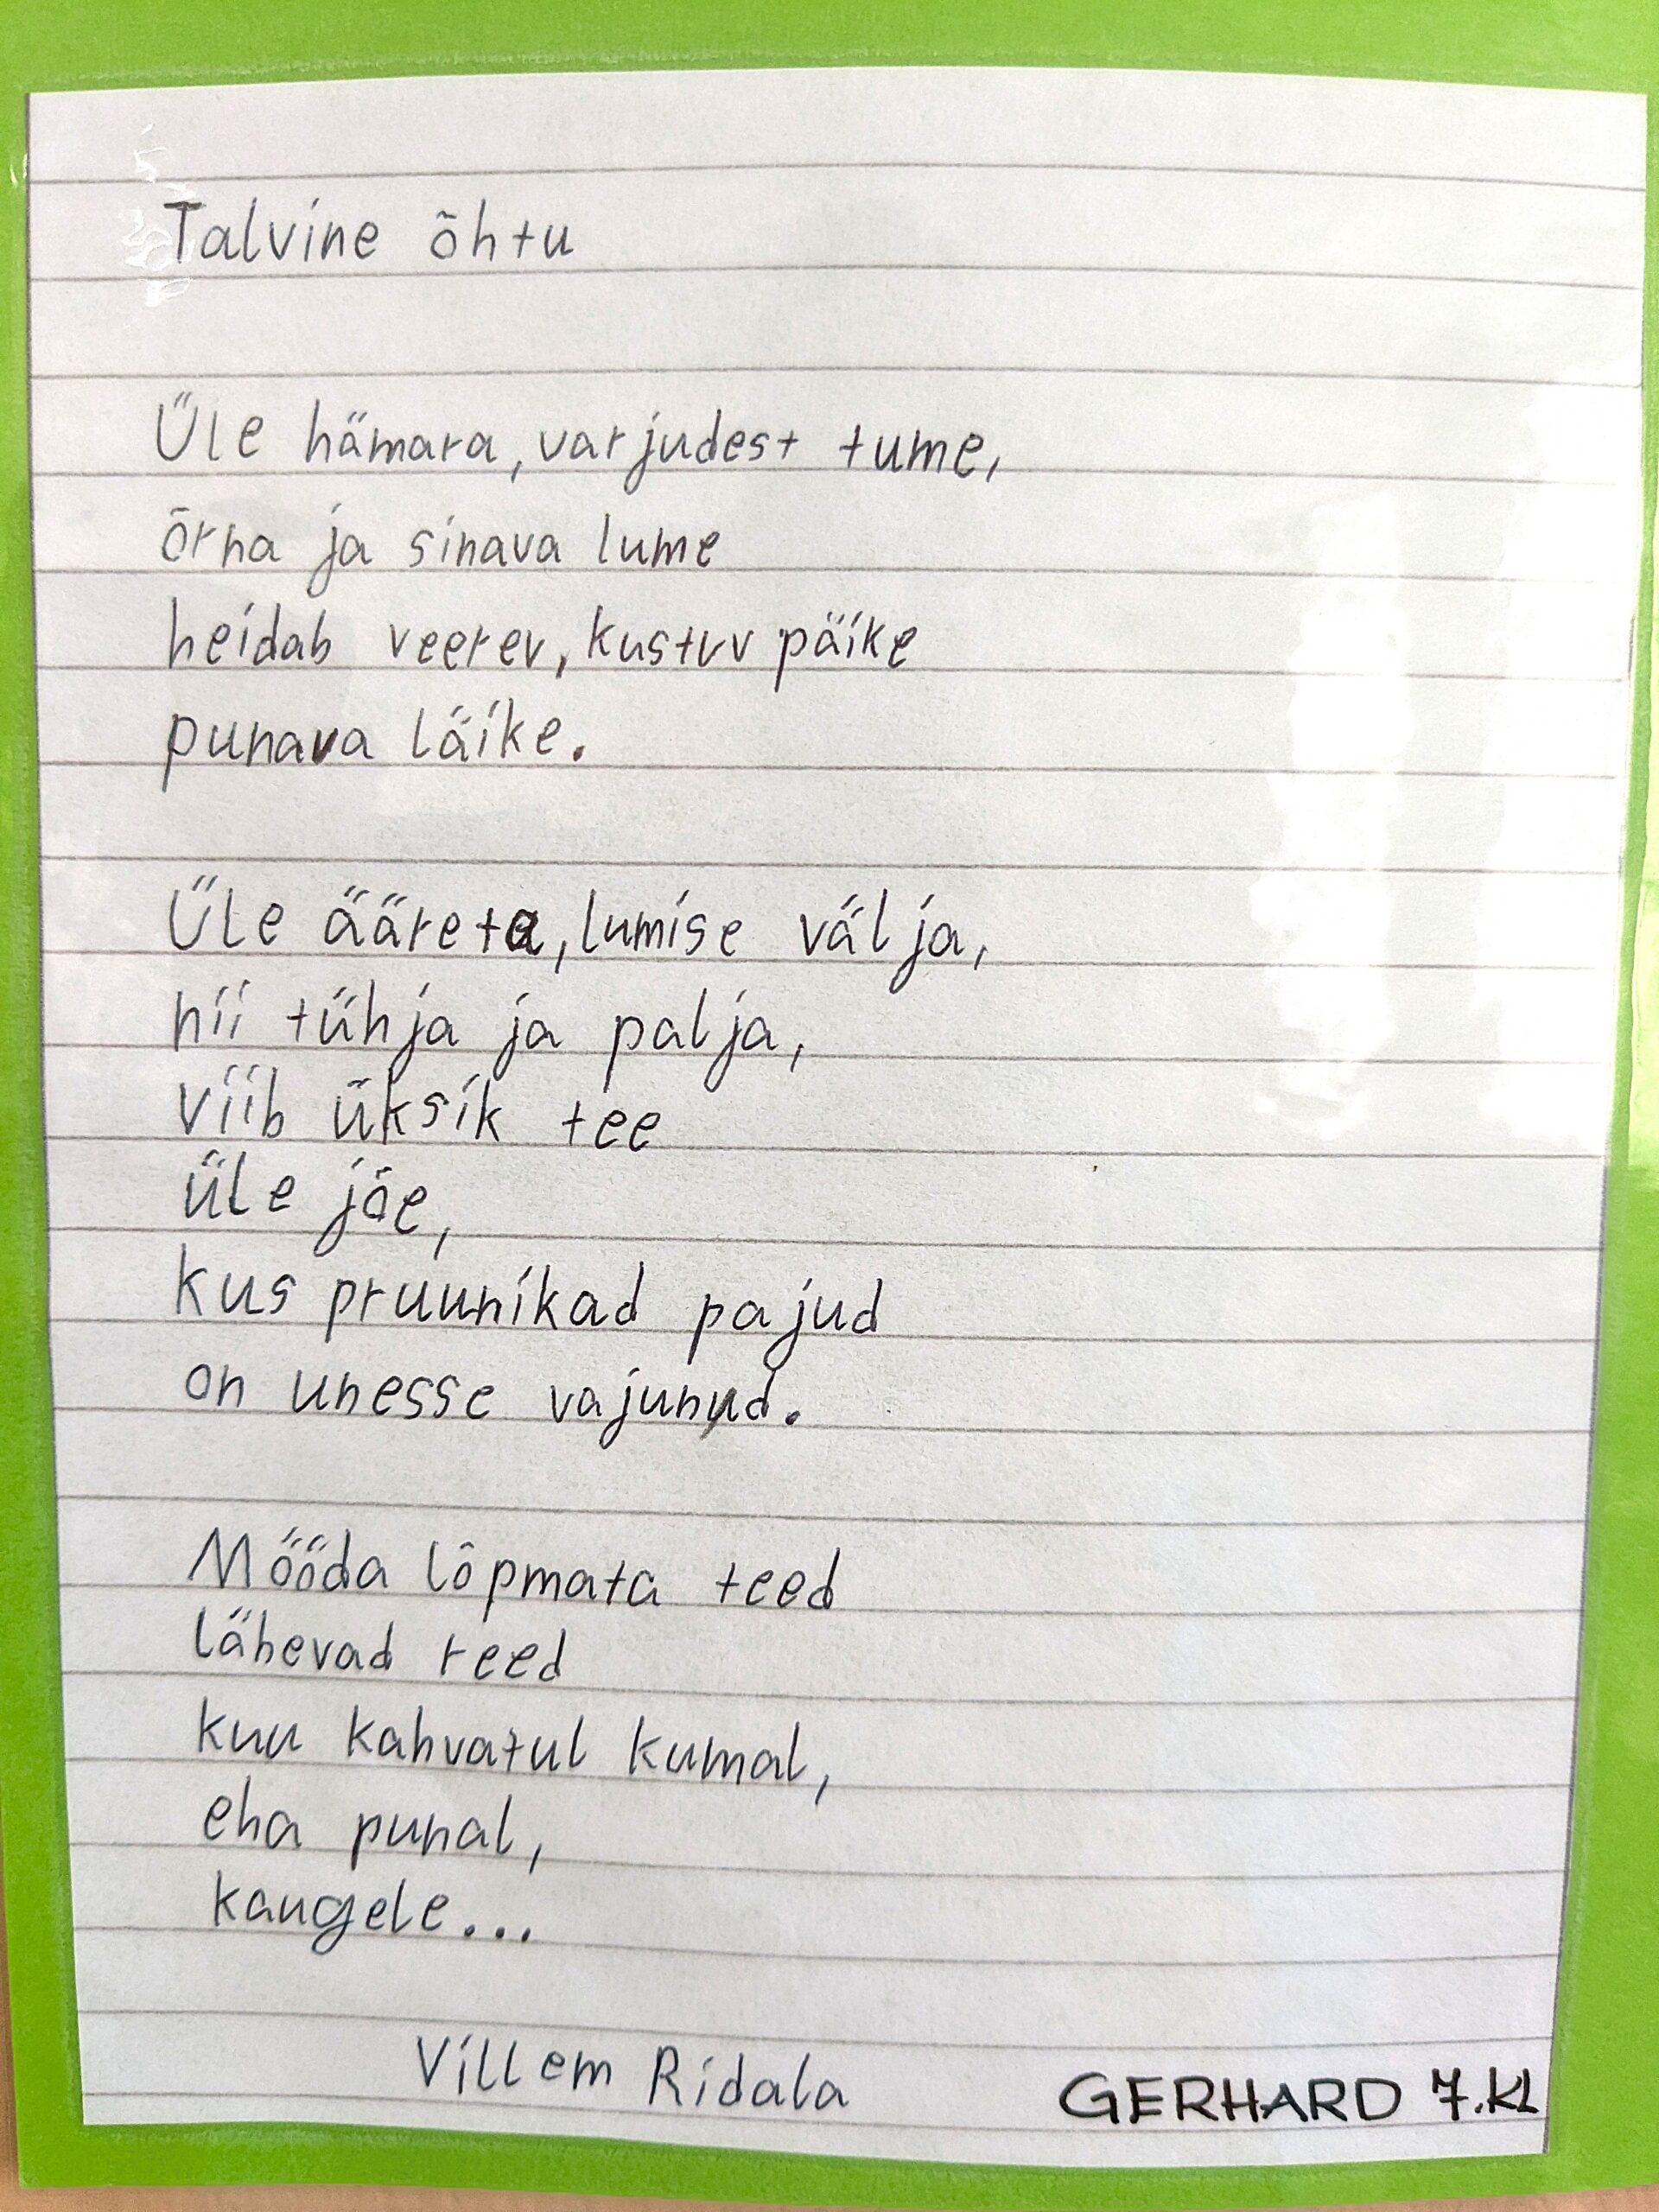 Talvine õhtu
Üle hämara, varjudest tume,
õrna ja sinava lume
heidab veerev, kustuv päike
punava läike.
Üle ääreta, lumise välja,
nii tühja ja palja,
viib üksik tee
üle jõe,
kus pruunikad pajud
on unesse vajunud.
Mööda lõpmata teed
lähevad reed
kuu kahvatul kumal,
eha punal,
kaugele...
Villem Ridala
GERHARD 7.KL